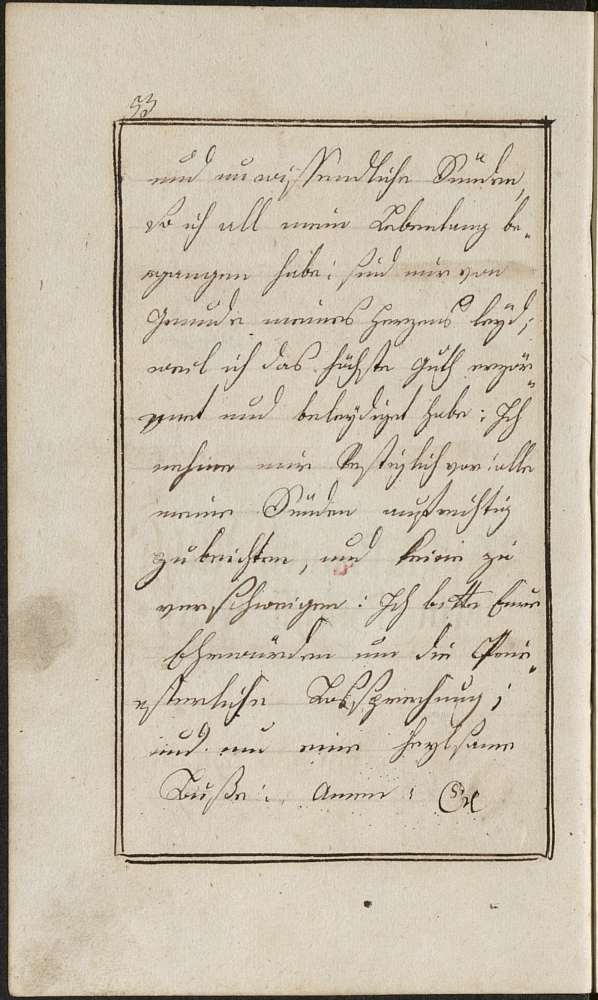 33
und unwissendliche Sünden,
so ich all mein Lebenlang be„
gangen habe: sind mir von
Grunde meines Herzens leyd;
weil ich das höchste Guth erzör„
net und beleydiget habe: Ich
nehme mir festiglich vor: alle
meine Sünden aufrichtig
zu beichten, und keine zu
verschweigen: Ich bitte Euer
Ehrwürden um die Prie„
sterliche Lossprechung;
und um eine heylsame
Buße:, Amen: